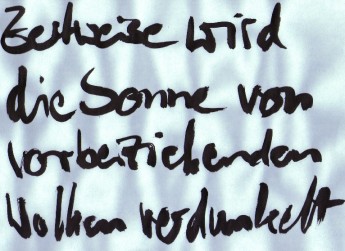 Zeitweise wird
die Sonne von
vorbeiziehenden
Wolken verdunkelt